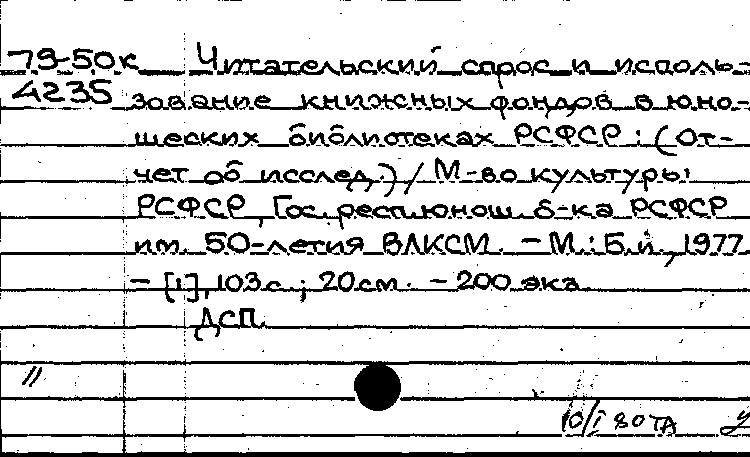 79-50к Читательский спрос и исполь-
4235 зование книжных фондов в юно-
шеских библиотеках РСФСР : (От-
чет об исслед.) / М-во культуры
РСФСР, Гос. респ. юнош. б-ка РСФСР
им. 50-летия ВЛКСМ. - М. : Б.и., 1977
- [1], 103 с. ; 20 см. - 200 экз
ДСП.
//
10/I 80 ТА